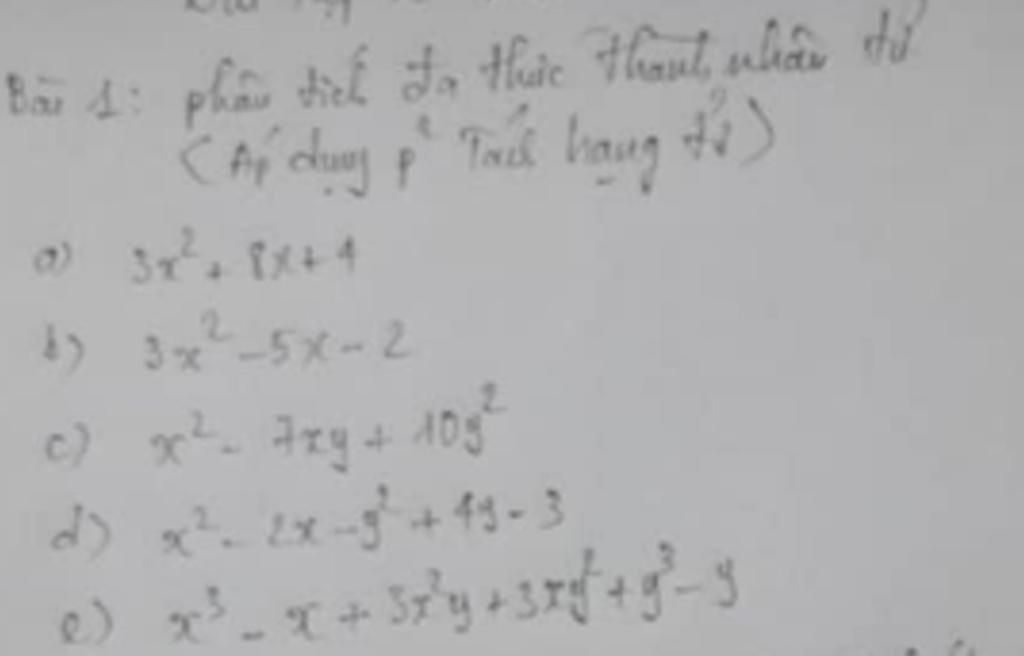 Bài 1: phân tích đa thức thành nhân tử
(Áp dụng p² Tách hạng tử)
a) 3x² + 8x + 4
b) 3x² - 5x - 2
c) x² - 7xy + 10y²
d) x² - 2x - y² + 4y - 3
e) x³ - x + 3x²y + 3xy² + y³ - y